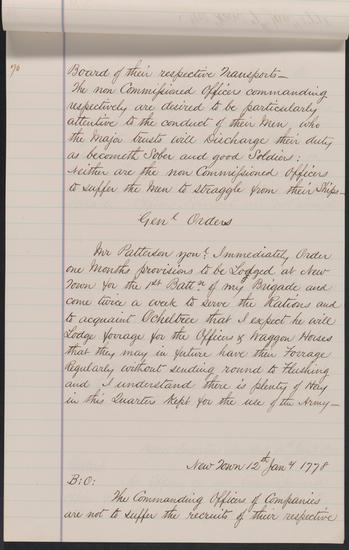 Board of their respective Transports —
The non Commissioned Officers commanding
respectively are desired to be particularly
attentive to the conduct of their Men, who
the Major trusts will Discharge their duty
as becometh Sober and good Soldiers:
Neither are the non Commissioned Officers
to suffer the Men to straggle from their Ships —
Genl Orders
Mr Patterson Immediately Order
one Months provisions to be Lodged at New
Town for the 1st Battn of my Brigade and
come twice a week to serve the Rations and
to acquaint Ocheltree that I expect he will
Lodge forrage for the Officers & Waggon Horses
that they may in future have their Forrage
Regularly without sending round to Flushing
and I understand there is plenty of Hay
in this Quarter kept for the use of the Army —
New Town 12th Jany 1778
B:O:
The Commanding Officers of Companies
are not to suffer the recruits of their respective